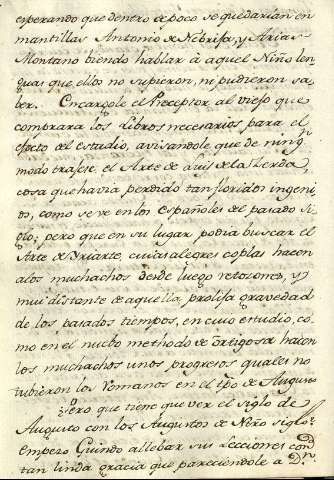 esperando que dentro de poco se quedarian en
mantillas Antonio de Nebrija, y Arias
Montano biendo hablar à aquel Niño len
guas que ellos no supieron, ni pudieron sa
ber. Encargole el Preceptor al viejo que
comprara los Libros necesarios para el
efecto del estudio, avisandole que de ningn
modo trajese el Arte de Luis de la Zerda,
cosa que havia perdido tan floridos ingeni
os, como se ve en los Españoles del pasado si
glo; pero que en su lugar podia buscar el
Arte de Yriarte, cuias alegres coplas hacen
a los muchachos desde luego retozones, y
mui distante de aquella prolija gravedad
de los pasados tiempos, en cuio estudio, co
mo en el nuebo methodo de Ortigosa hacen
los muchachos unos progresos quales no
tubieron los Romanos en el tpo de Augusto
Pero que tiene que ver el siglo de
Augusto con los Augustos de Nro siglo:
empezo Guindo a llebar sus Lecciones con
tan linda gracia que pareciendole a Dn